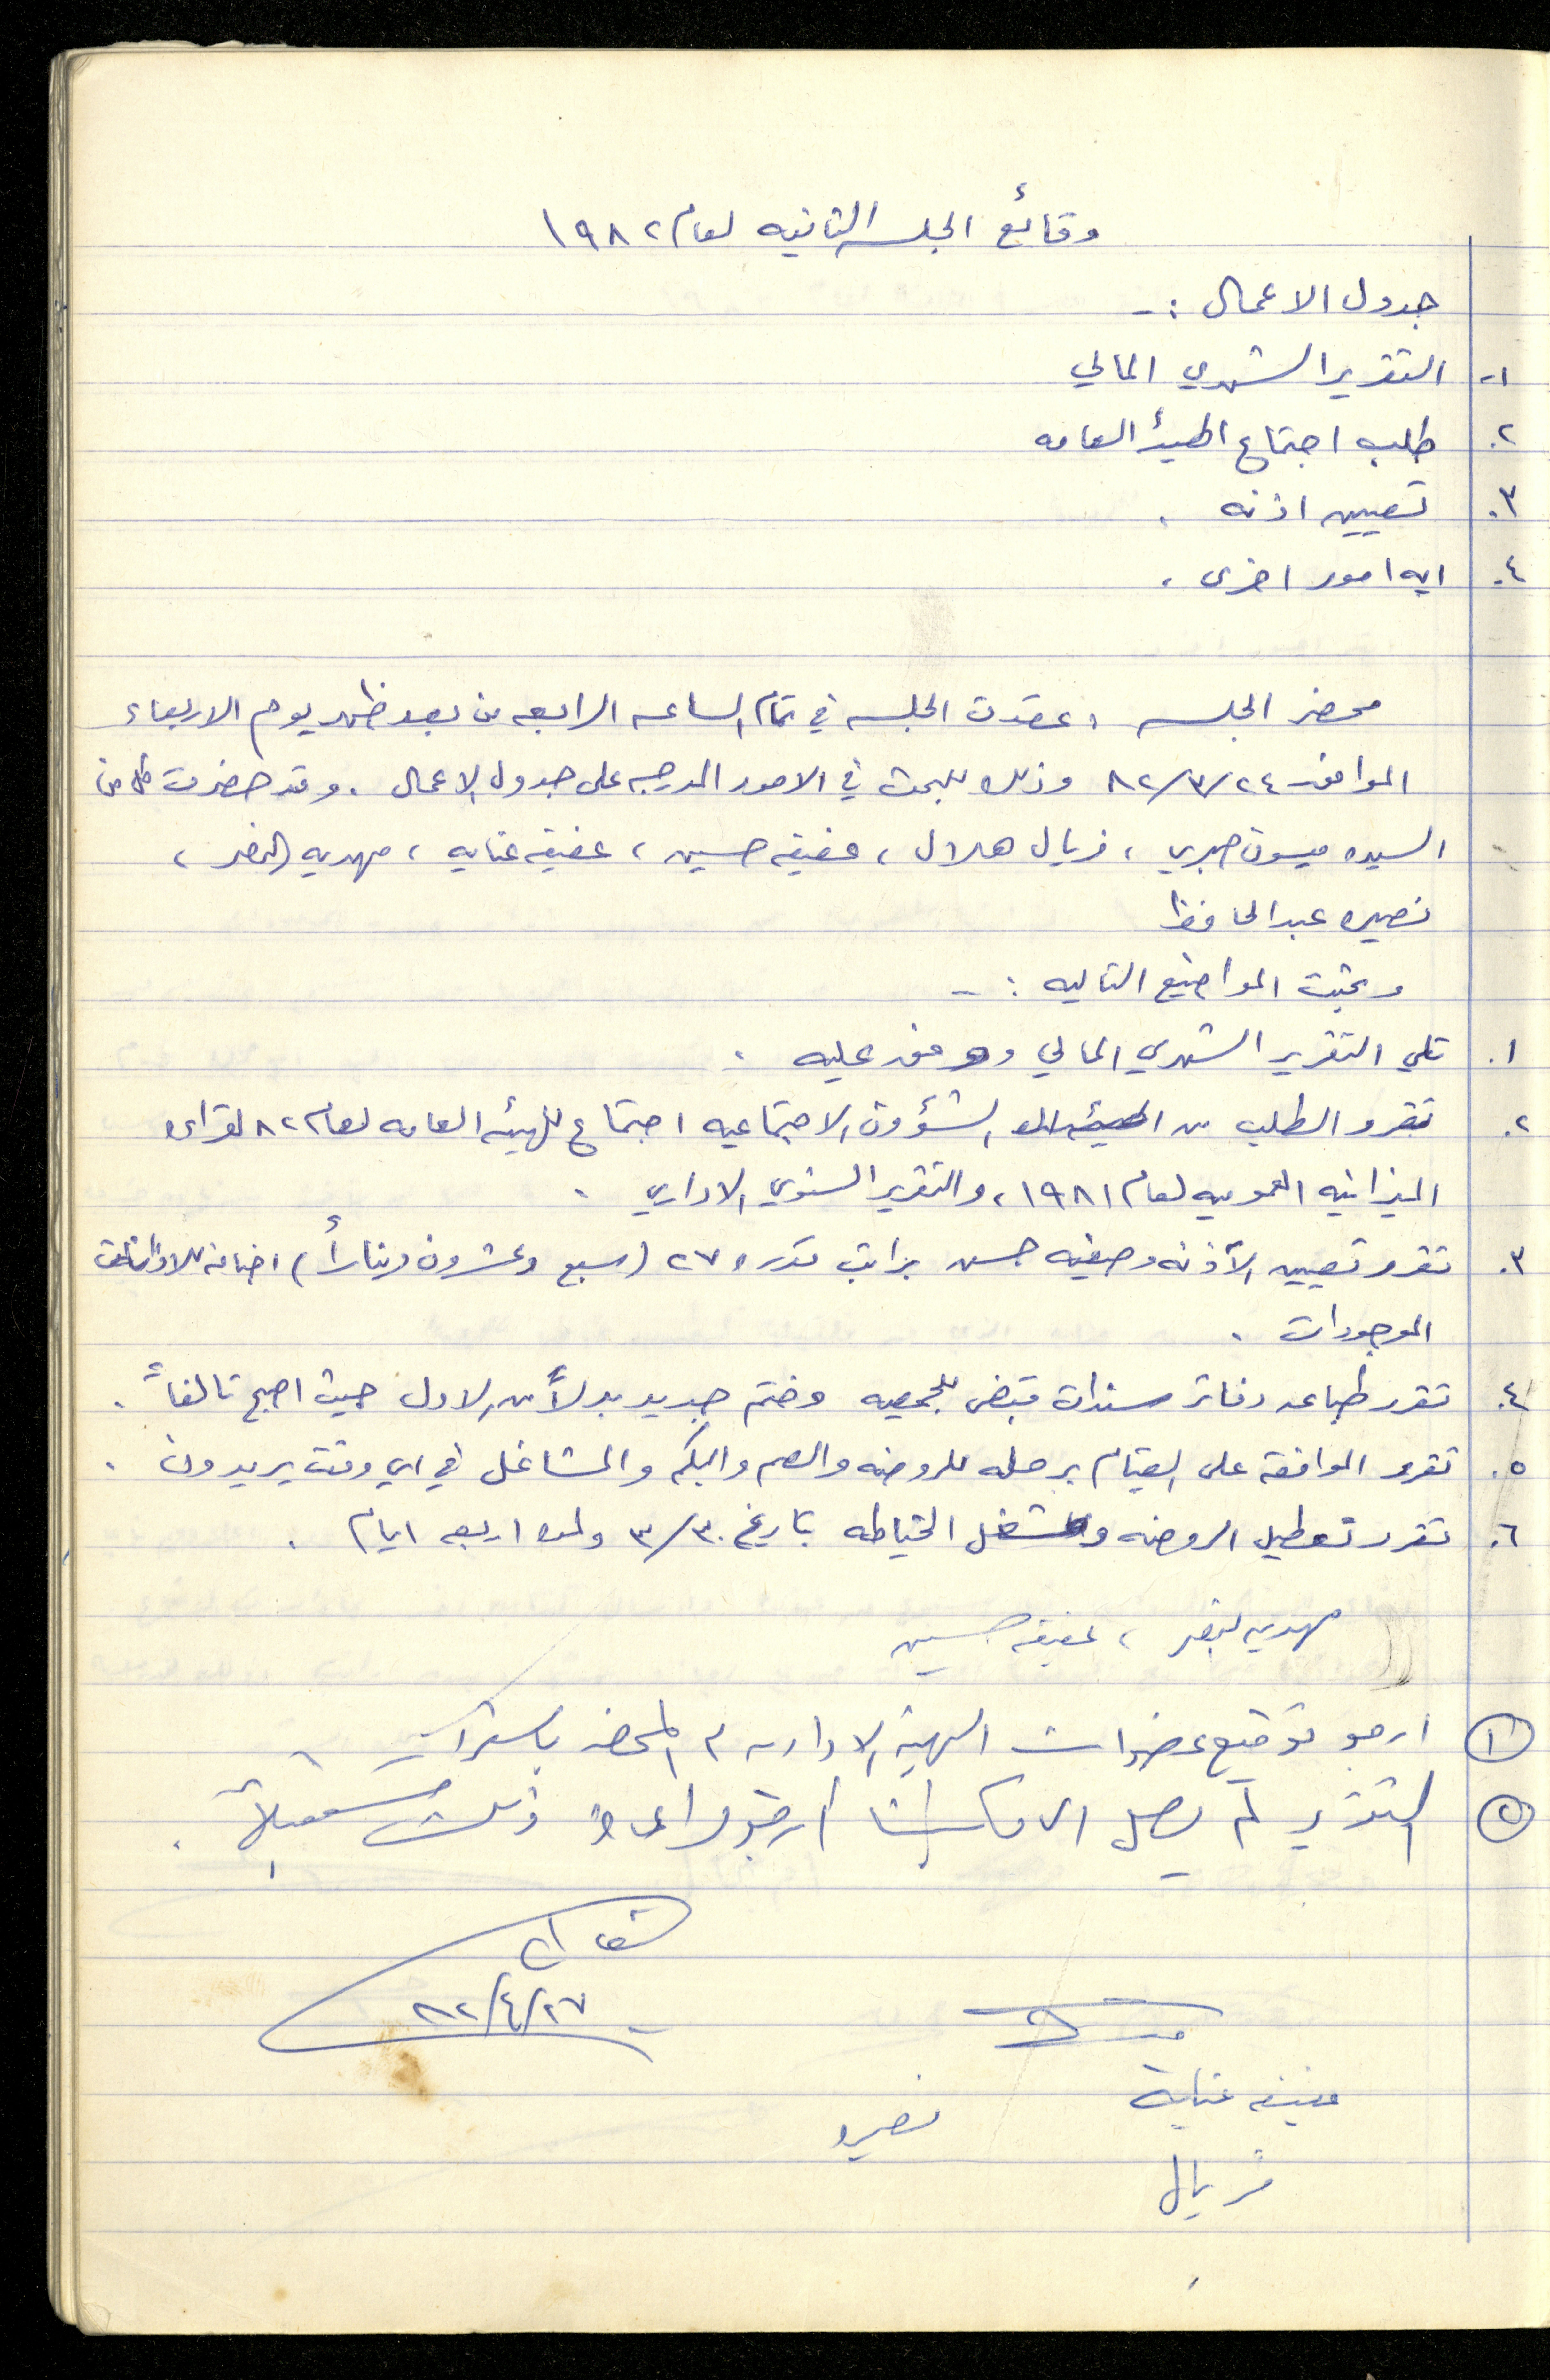 وقائع الجلسه الثانيه لعام ١٩٨٢
جدول الاعمال :-
١- التقرير الشهري المالي
٢. طلب اجتماع الهيئه العامه
٣. تعيين اذنه .
٤. ايه امور اخرى .
محضر الجلسه : عقدت الجلسه في تمام الساعه الرابعه من بعد ظهر يوم الاربعاء
الموافق ٨٢/٣/٢٤ وذلك للبحث في الامور المدرجه على جدول الاعمال . وقد حضرت كل من
السيده ميسون صبري ، فريال هلال ، عفيفه حسين ، عفيفه عنايه ، مهديه النمر ،
نصيره عبد الحافظ
وبحثت المواضيع التاليه :-
١. تلي التقرير الشهري المالي ووفق عليه .
٢. تقرر الطلب من الشؤون الاجتماعيه اجتماع للهيئه العامه لعام ٨٢ لقراءه
الميزانيه العموميه لعام ١٩٨١ ، والتقرير السنوي الاداري .
٣. تقرر تعيين الآذنه وصفيه حسن براتب قدره ٢٧ (سبع وعشرون ديناراً) اضافه للاذنات
الموجودات .
٤. تقرر طباعه دفاتر سندات قبض للجمعيه وختم جديد بدلاً من الاول حيث اصبح تالفاً .
٥. تقرر الموافقة على القيام برحله للروضه والصم والبكم والمشاغل في اي وقت يريدون .
٦. تقرر تعطيل الروضه ومشغل الخياطه بتاريخ ٣/٣٠ ولمده اربعه ايام .
مهديه النمر ، عفيفه حسين
١ ارجو توقيع عضوات الهيئة الاداريه المحضر باستمرار
٢ التقرير لم يصل الى مكاتبنا ارجو مراعاة ذلك مستقبلاً .
٨٢/٤/٢٧
عفيفه عناية
نصيره
فريال